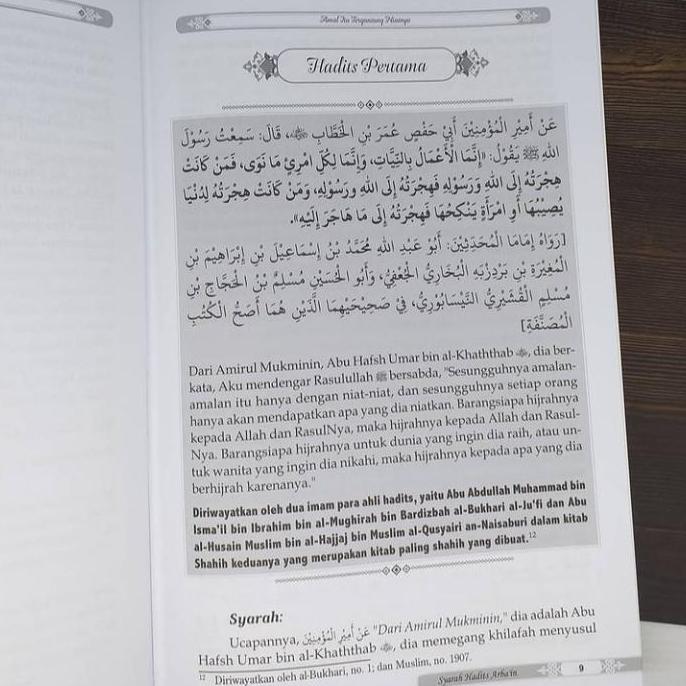 Amal Itu Tergantung Niatnya
Hadits Pertama
عَنْ أَمِيْرِ الْمُؤْمِنِيْنَ أَبِيْ حَفْصٍ عُمَرَ بْنِ الْخَطَّابِ ﷺ، قَالَ: سَمِعْتُ رَسُوْلَ
اللهِ ﷺ يَقُوْلُ: «إِنَّمَا الْأَعْمَالُ بِالنِّيَّاتِ، وَإِنَّمَا لِكُلِّ امْرِئٍ مَا نَوَى، فَمَنْ كَانَتْ
هِجْرَتُهُ إِلَى اللهِ وَرَسُوْلِهِ فَهِجْرَتُهُ إِلَى اللهِ وَرَسُوْلِهِ، وَمَنْ كَانَتْ هِجْرَتُهُ لِدُنْيَا
يُصِيْبُهَا أَوِ امْرَأَةٍ يَنْكِحُهَا فَهِجْرَتُهُ إِلَى مَا هَاجَرَ إِلَيْهِ».
[رَوَاهُ إِمَامَا الْمُحَدِّثِيْنَ: أَبُوْ عَبْدِ اللهِ مُحَمَّدُ بْنُ إِسْمَاعِيْلَ بْنِ إِبْرَاهِيْمَ بْنِ
الْمُغِيْرَةِ بْنِ بَرْدِزْبَهْ الْبُخَارِيُّ الْجُعْفِيُّ، وَأَبُو الْحُسَيْنِ مُسْلِمُ بْنُ الْحَجَّاجِ بْنِ
مُسْلِمٍ الْقُشَيْرِيُّ النَّيْسَابُوْرِيُّ، فِيْ صَحِيْحَيْهِمَا الَّذَيْنِ هُمَا أَصَحُّ الْكُتُبِ
الْمُصَنَّفَةِ]
Dari Amirul Mukminin, Abu Hafsh Umar bin al-Khaththab , dia ber-
kata, Aku mendengar Rasulullah ﷺ bersabda, "Sesungguhnya amalan-
amalan itu hanya dengan niat-niat, dan sesungguhnya setiap orang
hanya akan mendapatkan apa yang dia niatkan. Barangsiapa hijrahnya
kepada Allah dan RasulNya, maka hijrahnya kepada Allah dan Rasul-
Nya. Barangsiapa hijrahnya untuk dunia yang ingin dia raih, atau un-
tuk wanita yang ingin dia nikahi, maka hijrahnya kepada apa yang dia
berhijrah karenanya."
Diriwayatkan oleh dua imam para ahli hadits, yaitu Abu Abdullah Muhammad bin
Isma'il bin Ibrahim bin al-Mughirah bin Bardizbah al-Bukhari al-Ju'fi dan Abu
al-Husain Muslim bin al-Hajjaj bin Muslim al-Qusyairi an-Naisaburi dalam kitab
Shahih keduanya yang merupakan kitab paling shahih yang dibuat.12
Syarah:
Ucapannya, عَنْ أَمِيْرِ الْمُؤْمِنِيْنَ "Dari Amirul Mukminin," dia adalah Abu
Hafsh Umar bin al-Khaththab , dia memegang khilafah menyusul
12 Diriwayatkan oleh al-Bukhari, no. 1; dan Muslim, no. 1907.
Syarah Hadits Arba'in
9